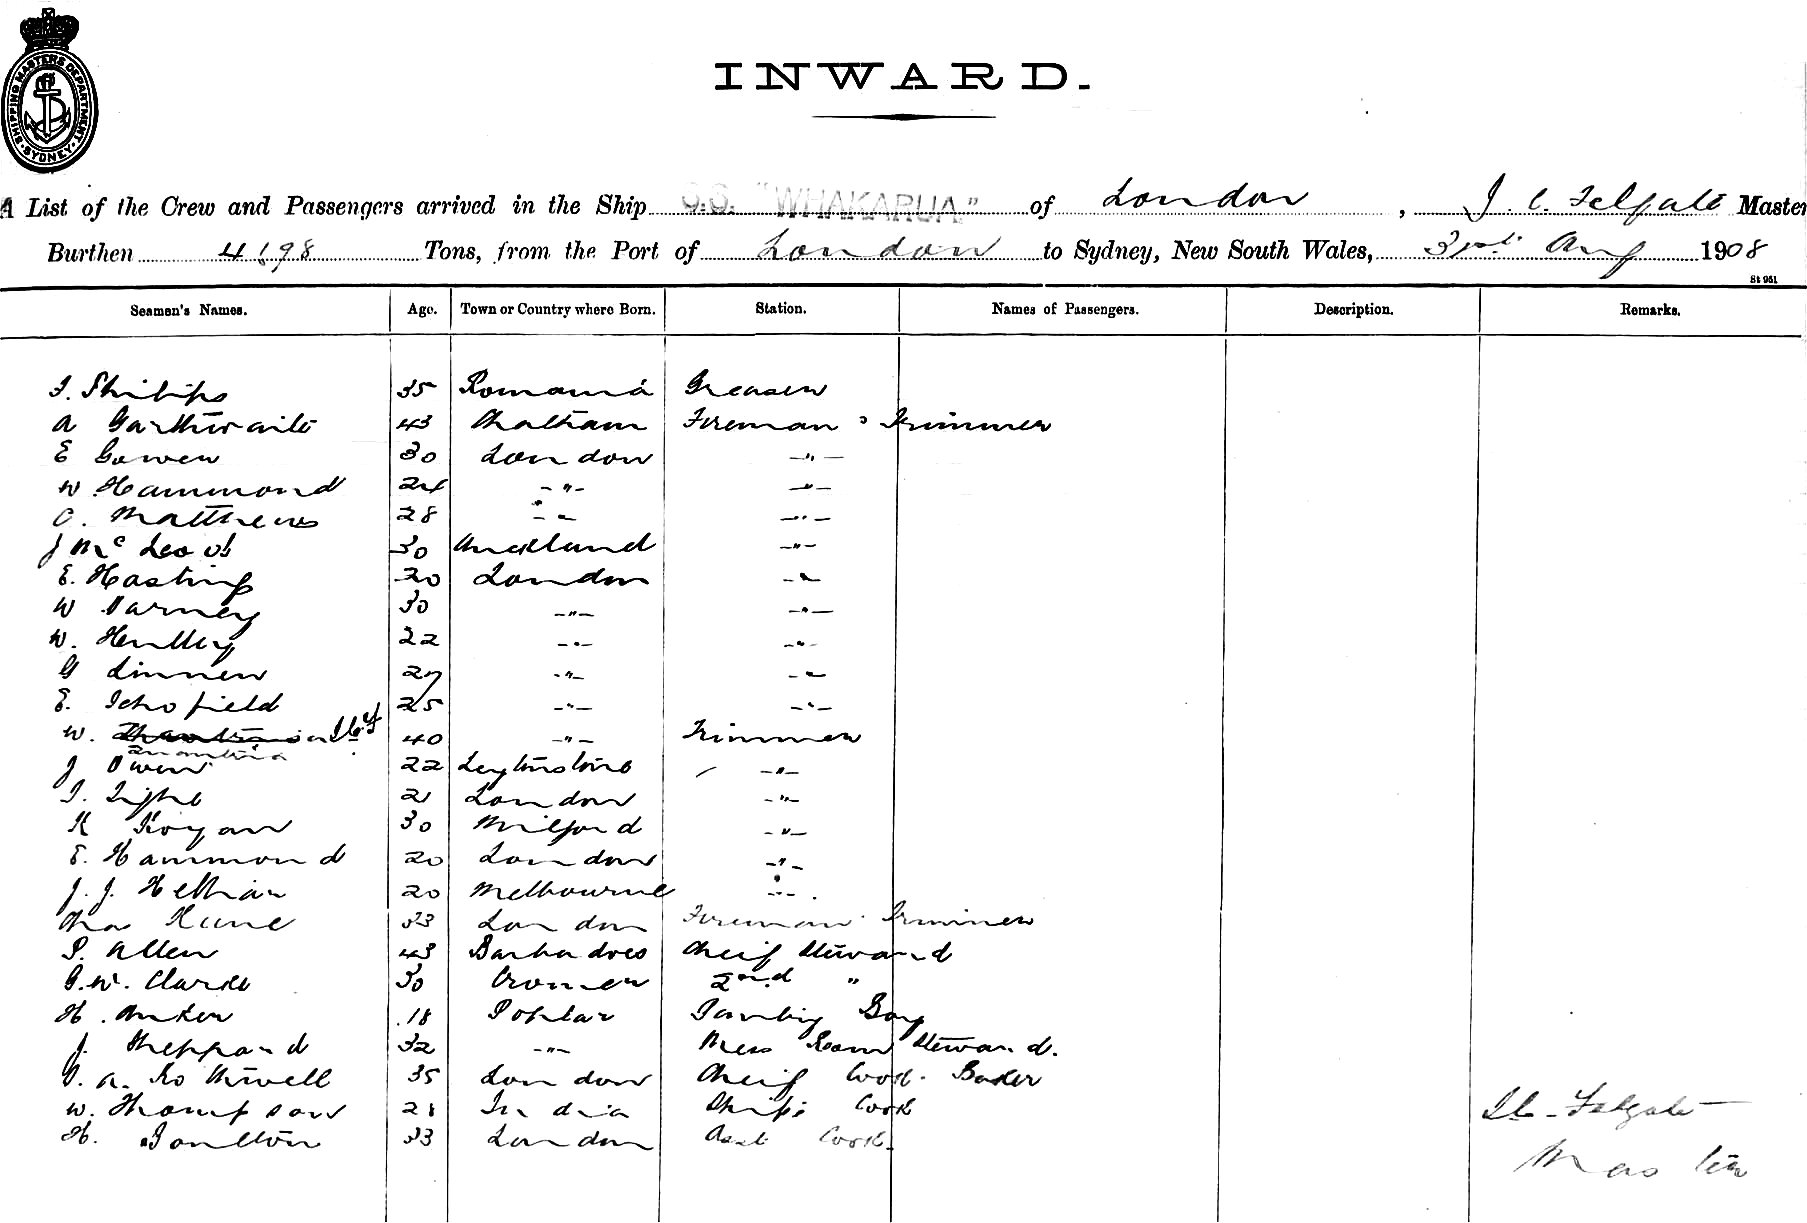 SHIPPING MASTERS DEPARTMENT
SYDNEY
INWARD.
A List of the Crew and Passengers arrived in the Ship S.S. "WHAKARUA" of London, J. C. Felgate Master
Burthen 4198 Tons, from the Port of London to Sydney, New South Wales, 31st Aug 1908
St 951
Seamen's Names. Age. Town or Country where Born. Station. Names of Passengers. Description. Remarks.
35 Romania Greaser
A Garthwaite 43 Chatham Fireman & Trimmer
E Gowen 30 London -"-
W Hammond 24 -"- -"-
C. Matthews 28 -"- -"-
J McLeod 30 Auckland -"-
E. Hasting 20 London -"-
W Varney 30 -"- -"-
W. Hendley 22 -"- -"-
G Linnen 27 -"- -"-
E. Schofield 25 -"- -"-
W. 40 -"- Trimmer
J Owen 22 Leytonstone -"-
21 London -"-
K Kogan 30 Milford -"-
E. Hammond 20 London -"-
J. J. 20 Melbourne -"-
Chas Kune 33 London Fireman Trimmer
P. Allen 43 Barbadoes Cheif Steward
G. W. Clarke 30 Cromer 2nd "
H. Anker 18 Poplar Pantry Boy
J. Sheppard 32 -"- Mess Room Steward.
V. A. Rothwell 35 London Cheif Cook. Baker
W. Thompson 28 India Ships Cook
H. Boulton 33 London Asst Cook.
J C Felgate
Master